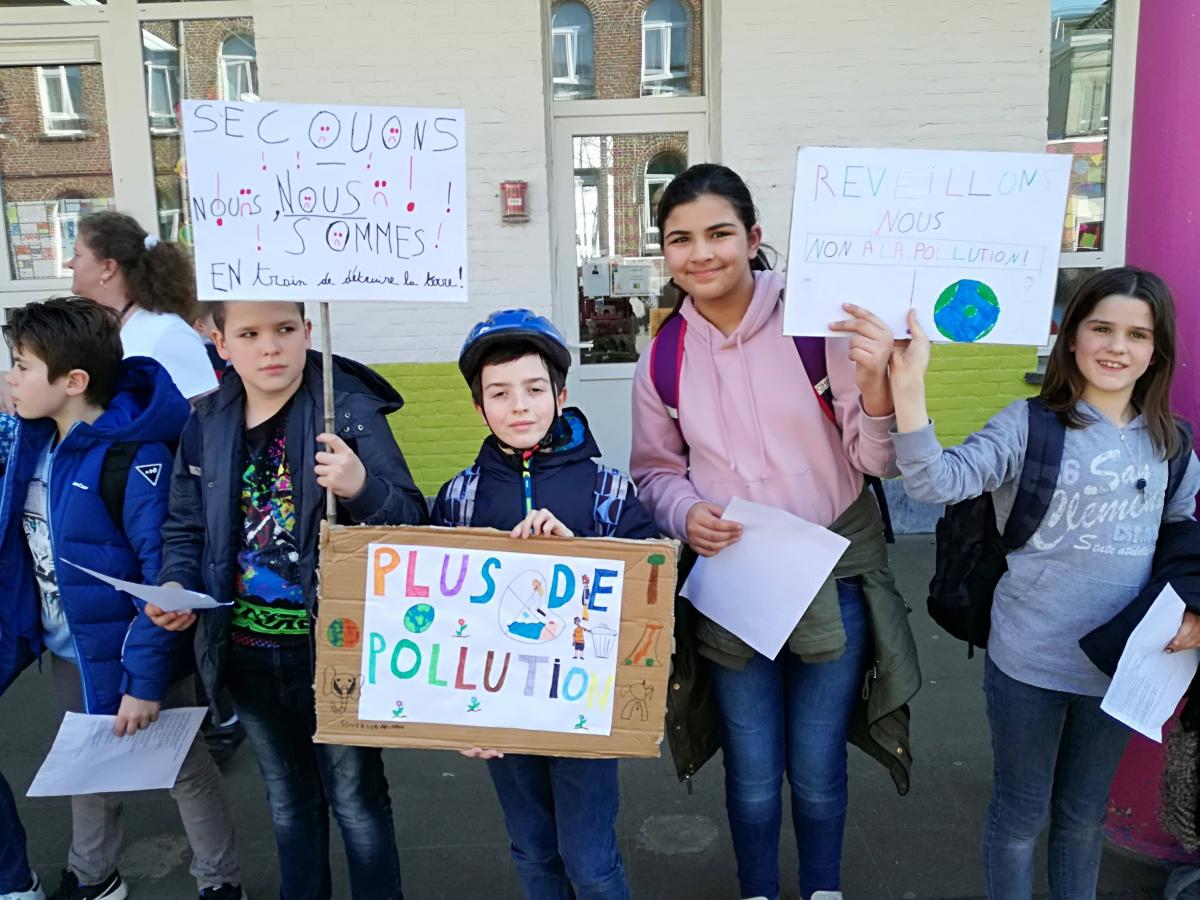 SECOUONS
NOUS, NOUS
SOMMES!
EN train de détruire la terre!
REVEILLONS
NOUS
NON A LA POLLUTION!
PLUS DE
POLLUTION
San
Clemente